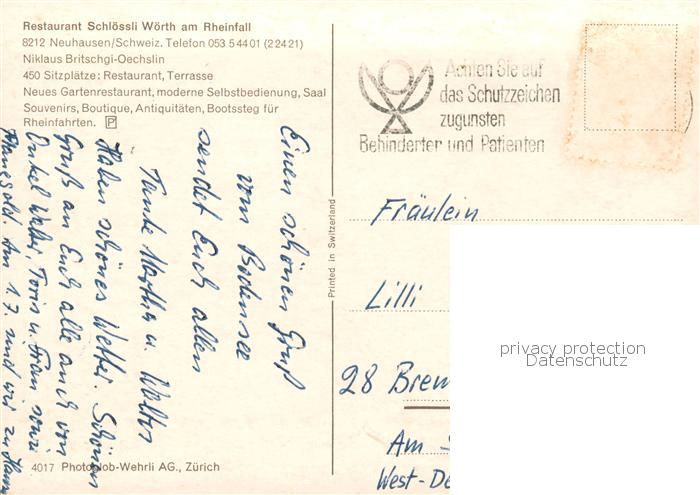 Restaurant Schlössli Wörth am Rheinfall
8212 Neuhausen/Schweiz. Telefon 053 5 44 01 (2 24 21)
Niklaus Britschgi-Oechslin
450 Sitzplätze: Restaurant, Terrasse
Neues Gartenrestaurant, moderne Selbstbedienung, Saal
Souvenirs, Boutique, Antiquitäten, Bootssteg für
Rheinfahrten. P
Achten Sie auf
das Schutzzeichen
zugunsten
Behinderter und Patienten
Einen schönen Gruß
vom Bodensee
sendet Euch allen
Tante Martha u. Walter
Haben schönes Wetter. Schönen
Gruß an Euch alle auch von
Onkel Walter, u. Frau sowie
Am 1.7. sind wir zu Haus
Printed in Switzerland
Fräulein
Lilli
28 Brem
Am
West-De
privacy protection
Datenschutz
4017 Photoglob-Wehrli AG., Zürich